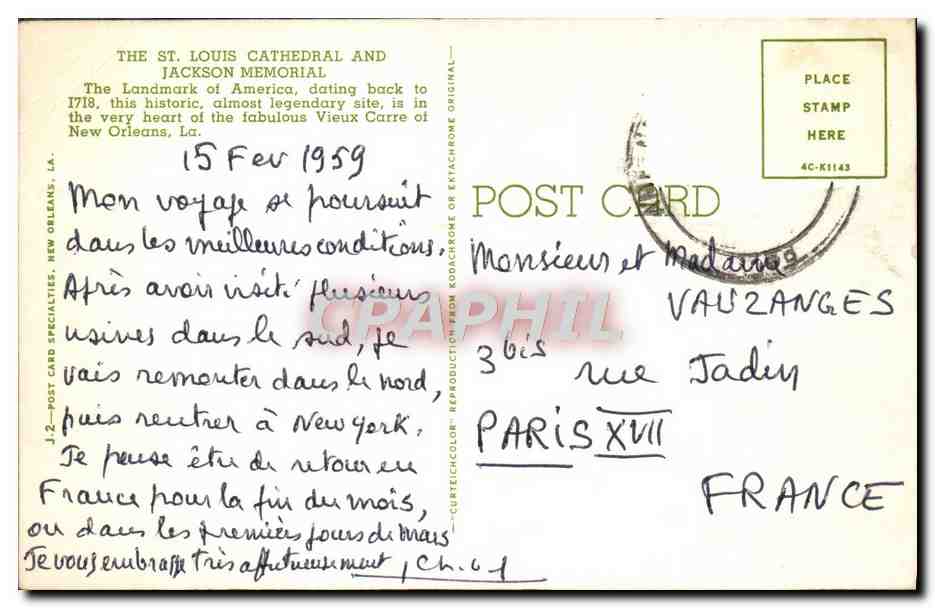 THE ST. LOUIS CATHEDRAL AND
JACKSON MEMORIAL
The Landmark of America, dating back to
1718, this historic, almost legendary site, is in
the very heart of the fabulous Vieux Carre of
New Orleans, La.
15 Fev 1959
Mon voyage se poursuit
dans les meilleures conditions.
Après avoir visité plusieurs
usines dans le sud, je
vais remonter dans le nord,
puis rentrer à New York.
Je pense être de retour en
France pour la fin du mois,
ou dans les premiers jours de Mars
Je vous embrasse très affectueusement
J-2—POST CARD SPECIALTIES, NEW ORLEANS, LA.
"CURTEICHCOLOR" REPRODUCTION FROM KODACHROME OR EKTACHROME ORIGINAL
POST CARD
PLACE
STAMP
HERE
4C-K1143
Monsieur et Madame
VAUZANGES
3 bis
rue Jadin
PARIS XVII
FRANCE
CPAPHIL